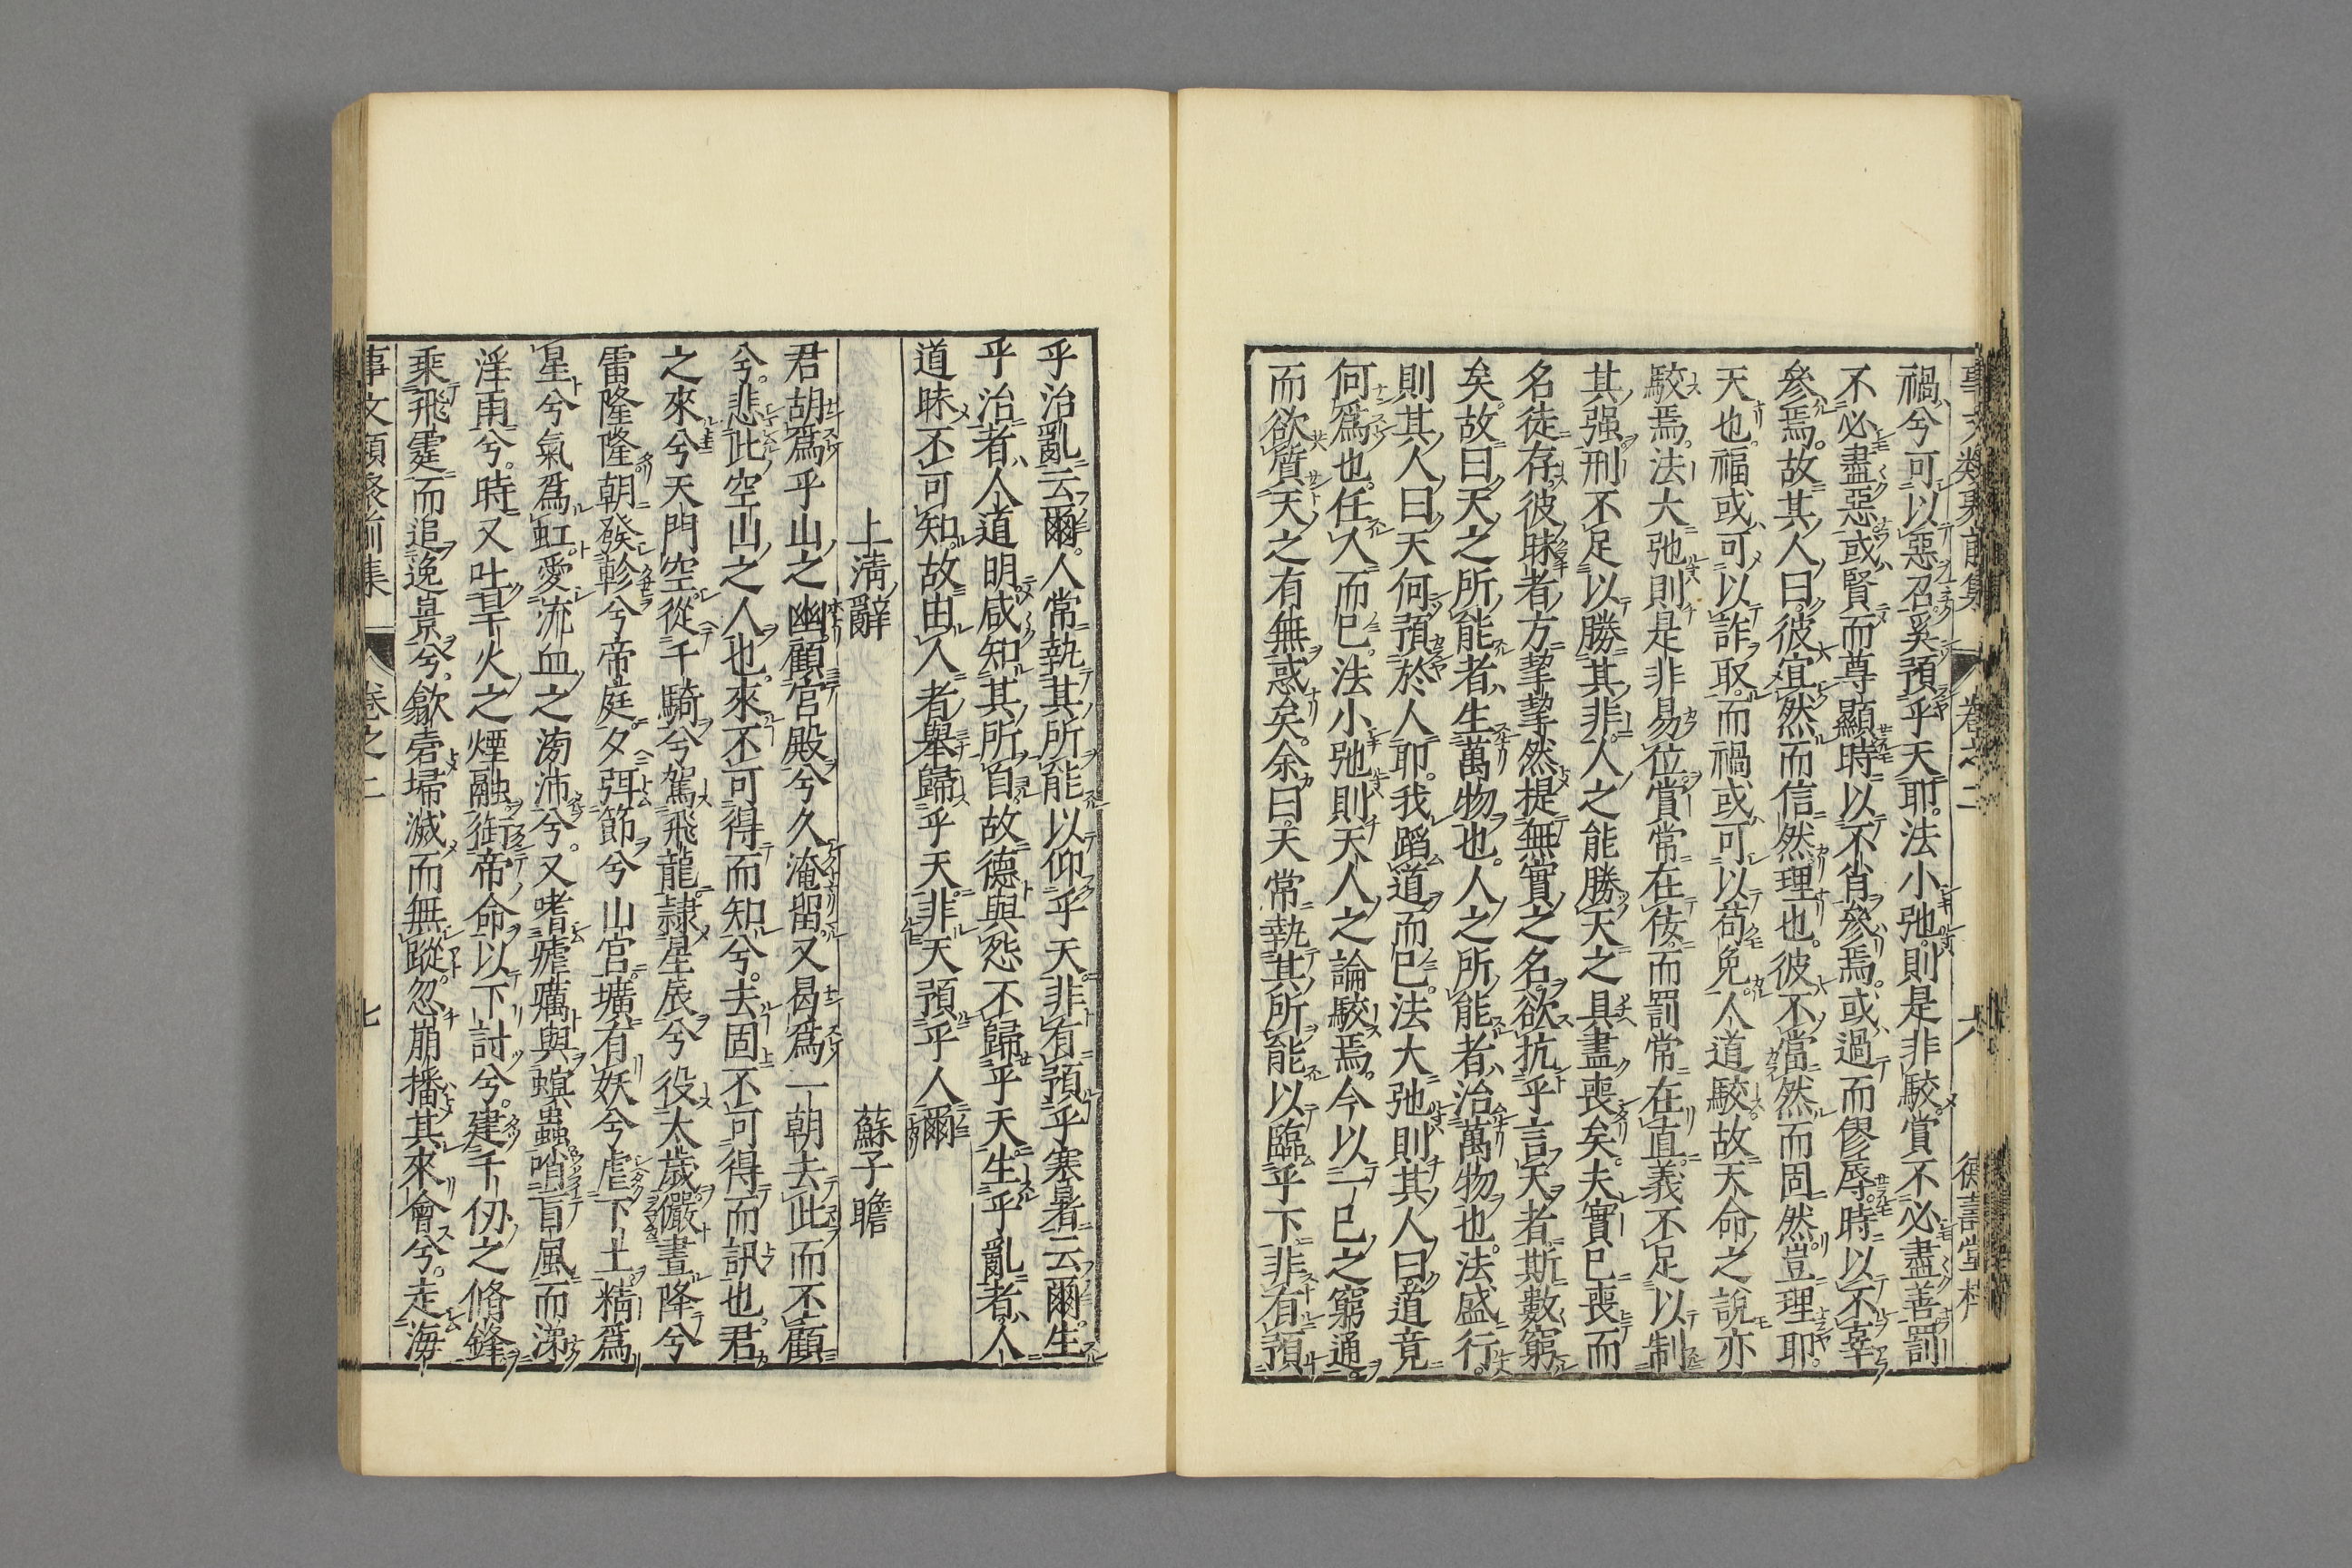 禍兮可以惡召奚預乎天耶法小弛則是非駮賞不必盡善罰
不必盡惡或賢而尊顯時以不肖參焉或過而僇辱時以不辜
參焉故其人曰彼宜然而信然理也彼不當然而固然豈理耶
天也福或可以詐取而禍或可以苟免人道駮故天命之說亦
駮焉法大弛則是非易位賞常在佞而罰常在直義不足以制
其强刑不足以勝其非人之能勝天之具盡喪矣夫實已喪而
名徒存彼昧者方挈挈然提無實之名欲抗乎言天者斯數窮
矣故曰天之所能者生萬物也人之所能者治萬物也法盛行
則其人曰天何預於人耶我蹈道而已法大弛則其人曰道竟
何爲也任人而已法小弛則天人之論駮焉今以一己之窮通
而欲質天之有無惑矣余曰天常執其所能以臨乎下非有預
乎治亂云爾人常執其所能以仰乎天非有預乎寒暑云爾生
乎治者人道明咸知其所自故德與怨不歸乎天生乎亂者人
道昧不可知故由人者舉歸乎天非天預乎人爾
上清辭　蘇子瞻
君胡爲乎山之幽顧宮殿兮久淹留又曷爲一朝去此而不顧
兮悲此空山之人也來不可得而知兮去固不可得而訊也君
之來兮天門空從千騎兮駕飛龍隷星辰兮役太歲儼晝降兮
雷隆隆朝發軫兮帝庭夕弭節兮山宮壙有妖兮虐下土精爲
星兮氣爲虹愛流血之滂沛兮又嗜瘧癘與螟蟲哨盲風而涕
淫雨兮時又吐旱火之煙融銜帝命以下討兮建千仞之脩鋒
乘飛霆而追逸景兮歘砉掃滅而無蹤忽崩播其來會兮走海
事文類聚前集　卷之二　七